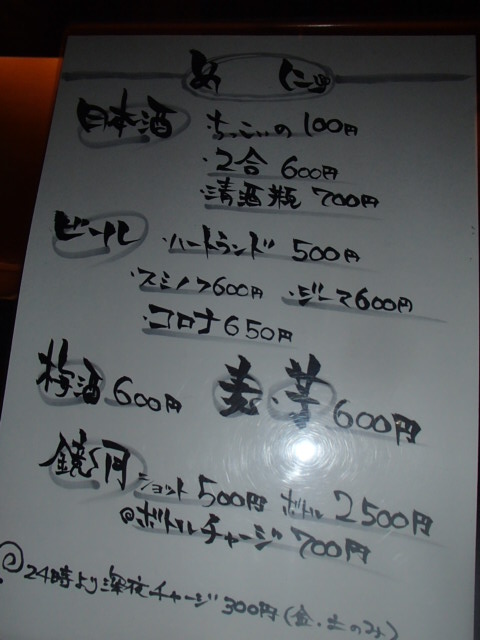 日本酒 ちっこいの 100円
・2合 600円
・清酒瓶 700円
ビール ・ハートランド 500円
・スミノフ600円 ・ジーマ600円
・コロナ650円
梅酒600円 麦・芋600円
鏡月 ショット500円 ボトル2500円
@ボトルチャージ700円
@24時より深夜チャージ300円(金・土のみ)